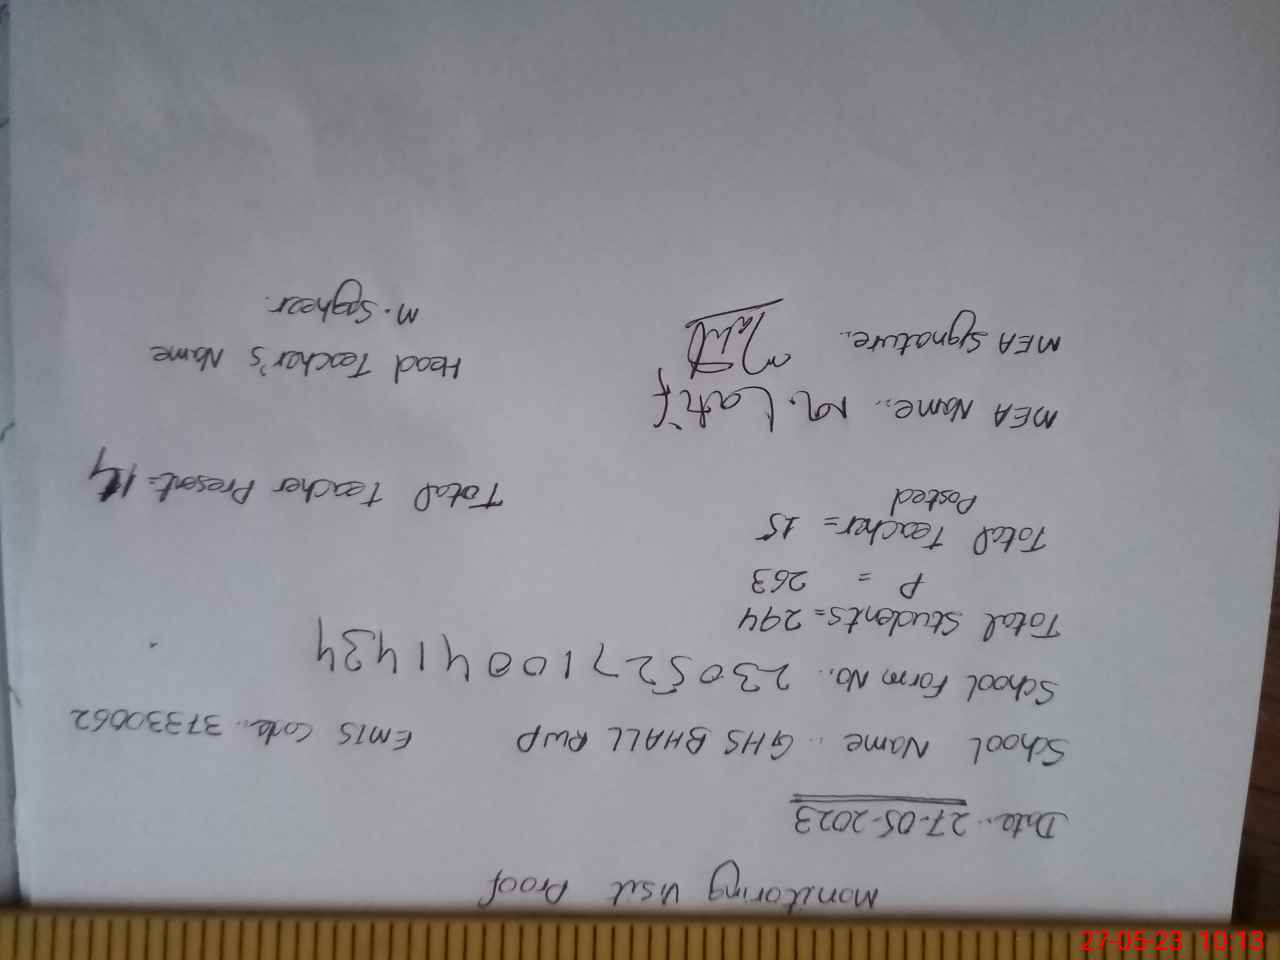 Monitoring Visit Proof
Date.. 27-05-2023
School Name.. GHS BHALL RWP EMIS Code.. 37330062
School Form No.. 23052710041434
Total Students = 294
P = 263
Total Teacher = 15 Total Teacher Present = 14
Posted
MEA Name.. M. Latif Head Teacher's Name
MEA Signature.. M. Sagheer.
27-05-23 10:13